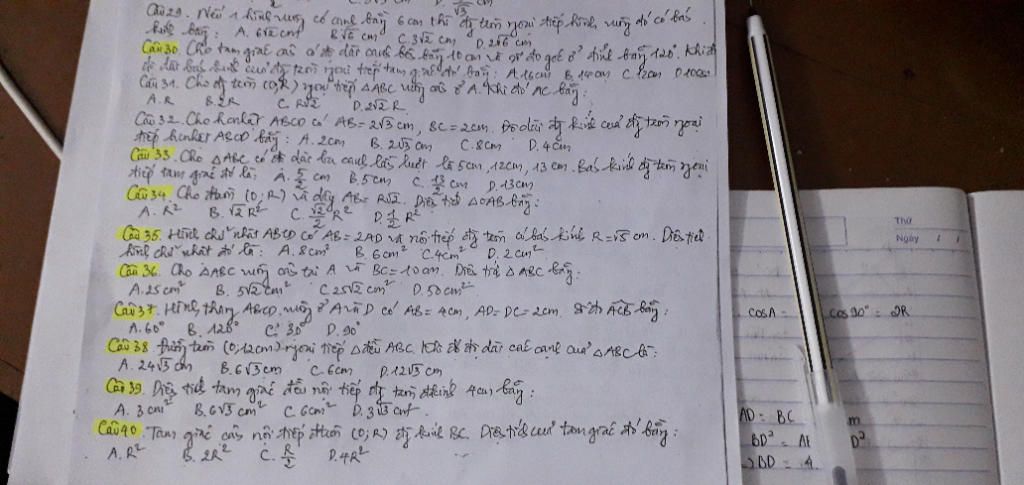 Câu 29. Nếu 1 hình vuông có cạnh bằng 6 cm thì đg tròn ngoại tiếp hình vuông đó có bán
kính bằng: A. 6√2 cm B. √6 cm C. 3√2 cm D. 2√6 cm
Câu 30. Cho tam giác cân có độ dài cạnh bên bằng 10 cm và số đo góc ở đỉnh bằng 120°. Khi đó
độ dài bán kính của đg tròn ngoại tiếp tam giác đó bằng: A. 16cm B. 14cm C. 12cm D. 10cm
Câu 31. Cho đg tròn (O,R) ngoại tiếp ΔABC vuông cân ở A. Khi đó AC bằng:
A. R B. 2R C. R√2 D. 2√2 R
Câu 32. Cho hcnhật ABCD có AB = 2√3 cm, BC = 2cm. Độ dài đg kính của đg tròn ngoại
tiếp hcnhật ABCD bằng: A. 2cm B. 2√3 cm C. 8cm D. 4cm
Câu 33. Cho ΔABC có độ dài ba cạnh lần lượt là 5cm, 12cm, 13cm. Bán kính đg tròn ngoại
tiếp tam giác đó là: A. 5/2 cm B. 5cm C. 13/2 cm D. 13cm
Câu 34. Cho (O; R) và dây AB = R√2. Diện tích ΔOAB bằng:
A. R² B. √2 R² C. √2/2 R² D. 1/2 R²
Câu 35. Hình chữ nhật ABCD có AB = 2AD và nội tiếp đg tròn có bán kính R = √5 cm. Diện tích
hình chữ nhật đó là: A. 8cm² B. 6cm² C. 4cm² D. 2cm²
Câu 36. Cho ΔABC vuông cân tại A và BC = 10cm. Diện tích ΔABC bằng:
A. 25cm² B. 5√2 cm² C. 25√2 cm² D. 50cm²
Câu 37. Hình thang ABCD vuông ở A và D có AB = 4cm, AD = DC = 2cm. Số đo ACB bằng:
A. 60° B. 120° C. 30° D. 90°
Câu 38. Đường tròn (O, 12cm) ngoại tiếp Δ đều ABC. Khi đó độ dài các cạnh của ΔABC là:
A. 24√3 cm B. 6√3 cm C. 6cm D. 12√3 cm
Câu 39. Diện tích tam giác đều nội tiếp đg tròn đkính 4cm bằng:
A. 3cm² B. 6√3 cm² C. 6cm² D. 3√3 cm²
Câu 40. Tam giác cân nội tiếp (O; R) đg kính BC. Diện tích của tam giác đó bằng:
A. R² B. 2R² C. R/2 D. 4R²
Thứ
Ngày / /
cosA = cos90° = 2R
AD = BC m
BD² = D²
BD = 4